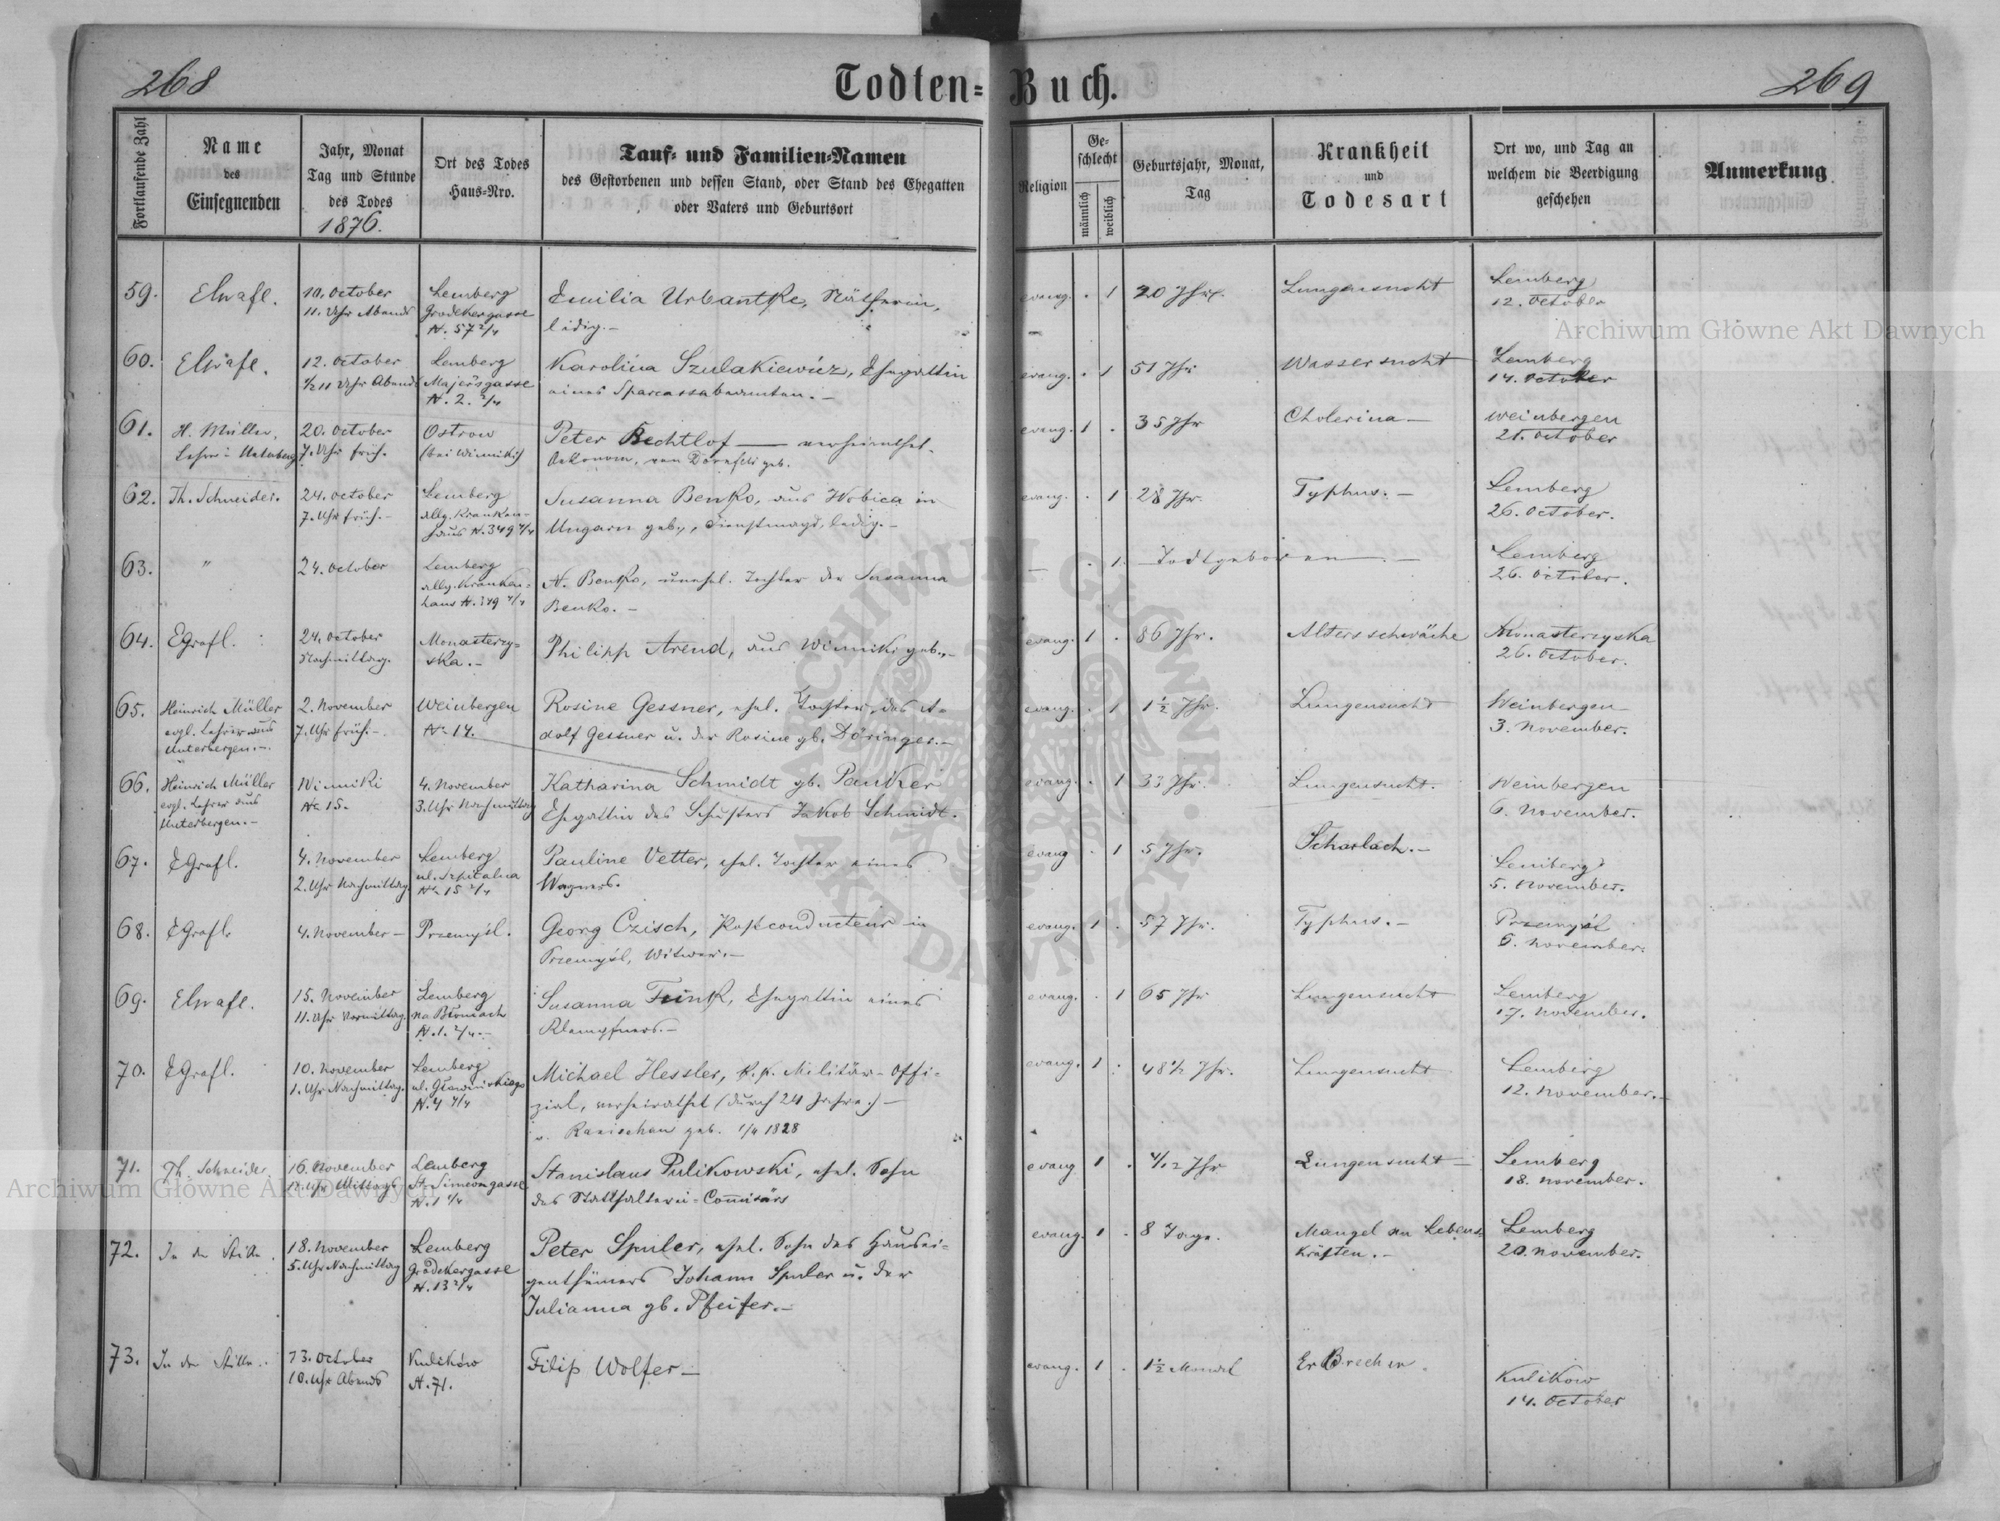 268
Todten-Buch.
269
Fortlaufende Zahl
Name
des
Einsegnenden
Jahr, Monat
Tag und Stunde
des Todes
1876.
Ort des Todes
Haus-Nro.
Tauf- und Familien-Namen
des Gestorbenen und dessen Stand, oder Stand des Ehegatten
oder Vaters und Geburtsort
Religion
Ge-
schlecht
männlich
weiblich
Geburtsjahr, Monat,
Tag
Krankheit
und
Todesart
Ort wo, und Tag an
welchem die Beerdigung
geschehen
Anmerkung
59. 10. October Lemberg Emilia Urbantke, Nätherin, evang. . 1 20 Jhr. Lungensucht Lemberg
11. Uhr Abends Grodekergasse ledig.— 12. October
N. 57 2/4
60. 12. October Lemberg Karolina Szulakiewicz, Ehegattin evang. . 1 51 Jhr Wassersucht Lemberg
1/2 11 Uhr Abends Majersgasse eines Sparcassabeamten.— 14. October
N. 2. 2/4
61. H. Müller, 20. October Ostrow Peter Bechtlof — verheirathet. evang. 1 . 35 Jhr Cholerina— Weinbergen
7. Uhr früh. (bei Winniki) Oekonom, von Dornfeld geb. 21. October
62. Th. Schneider. 24. October Lemberg Susanna Benko, aus in evang. . 1 28 Jhr. Typhus.— Lemberg
7. Uhr früh.— allg. Kranken- Ungarn geb., Dienstmagd, ledig.— 26. October.
haus N. 349 4/4
63. " 24. October Lemberg N. Benko, unehel. Tochter der Susanna — . 1. Todtgeboren — Lemberg
allg. Kranken- Benko.— 26. October.
haus N. 349 4/4
64. EGrafl. 24. October Monasterzy- Philipp Arend, aus Winniki geb.,— evang. 1 . 86 Jhr. Altersschwäche Monasterzyska
Nachmittag. ska.— 26. October.
65. Heinrich Müller 2. November Weinbergen Rosine Gessner, ehel. Tochter des A- evang. . 1 1 1/2 Jhr. Lungensucht Weinbergen
evgl. Lehrer aus 7. Uhr früh.— No 14. dolf Gessner u. der Rosine gb. Döringer.— 3. November.
Unterbergen.—
66. Heinrich Müller Winniki 4. November Katharina Schmidt gb. Paniker evang. . 1 33 Jhr. Lungensucht. Weinbergen
evgl. Lehrer aus No 15. 3. Uhr Nachmittag Ehegattin des Schusters Jakob Schmidt. 6. November.
Unterbergen.—
67. EGrafl. 4. November Lemberg Pauline Vetter, ehel. Tochter eines evang . 1 5 Jhr. Scharlach.— Lemberg
2. Uhr Nachmittag ul. Szpitalna Wagners. 5. November.
No 15 2/4
68. EGrafl. 4. November— Przemyśl. Georg Czisch, Postconducteur in evang. 1 . 57 Jhr. Typhus.— Przemyśl
Przemyśl, Witwer.— 6. November.
69. 15. November Lemberg Susanna Funk, Ehegattin eines evang. . 1 65 Jhr Lungensucht Lemberg
11. Uhr Vormittag na Błoniach Klempfners.— 17. November.
N. 1. 2/4.—
70. EGrafl. 10. November Lemberg Michael Hessler, k.k. Militär-Offi- evang. 1 . 48 1/2 Jhr. Lungensucht Lemberg
1. Uhr Nachmittag. zial, verheirathet (durch 24 Jahre.)— 12. November.—
N. 4 4/4 v. geb. 1/4 1828
71. Th. Schneider 16. November Lemberg Stanislaus Pulikowski, ehel. Sohn evang 1 . 4/12 Jhr Lungensucht— Lemberg
12. Uhr Mittags St. Simeongasse des Statthalterei-Commisärs 18. November.
N. 1 4/4
72. In der Stille. 18. November Lemberg Peter Spuler, ehel. Sohn des Hausei- evang. 1 . 8 Tage. Mangel an Lebens- Lemberg
5. Uhr Nachmittag Grodekergasse genthümers Johann Spuler u. der kräften.— 20. November.
N. 13 2/4 Julianna gb. Pfeifer.—
73. In der Stille. 13. October Kulikow Filip Wolfer— evang. 1 . 1 1/2 Monat Erbrechen. Kulikow
10. Uhr Abends N. 71. 14. October
Archiwum Główne Akt Dawnych
Archiwum Główne Akt Dawnych
ARCHIWUM GŁÓWNE AKT DAWNYCH